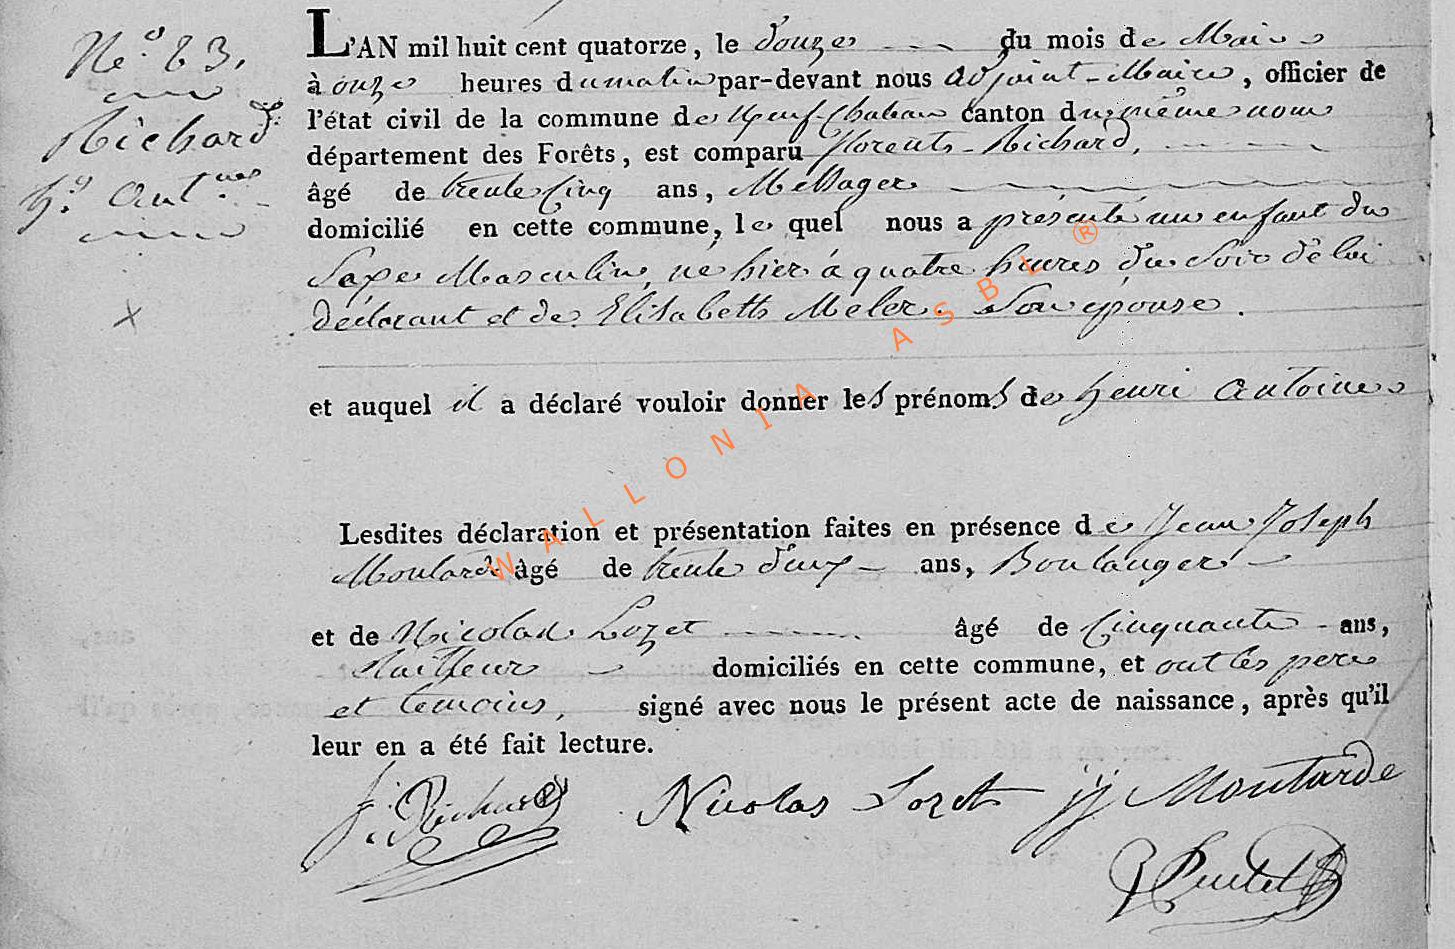 N.º 83.
Richard
h.i Ant.nes
L'AN mil huit cent quatorze, le douze du mois de Mai
à onze heures du matin par-devant nous adjoint-Maire, officier de
l'état civil de la commune de Neufchateau canton du même nom
département des Forêts, est comparu florents-Richard,
âgé de trente Cinq ans, Messager
domicilié en cette commune, le quel nous a présenté un enfant du
Saxe Masculin, né hier à quatre heures du soir de lui
déclarant et de Elisabeth Meler Son épouse.
et auquel il a déclaré vouloir donner les prénoms de henri antoine
Lesdites déclaration et présentation faites en présence de Jean Joseph
Moutarde âgé de trente deux ans, Boulanger
et de Nicolas Lozet âgé de Cinquante ans,
tailleur domiciliés en cette commune, et ont les pere
et temoins, signé avec nous le présent acte de naissance, après qu'il
leur en a été fait lecture.
f. Richard Nicolas Lozet jj Moutarde
WALLONIA ASBL ®